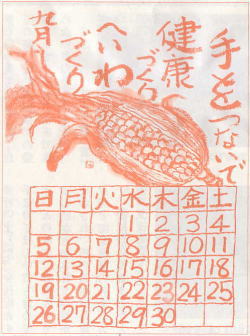 手をつないで
健康
づくり
へいわ
づくり
九月
日 月 火 水 木 金 土
1 2 3 4
5 6 7 8 9 10 11
12 13 14 15 16 17 18
19 20 21 22 23 24 25
26 27 28 29 30